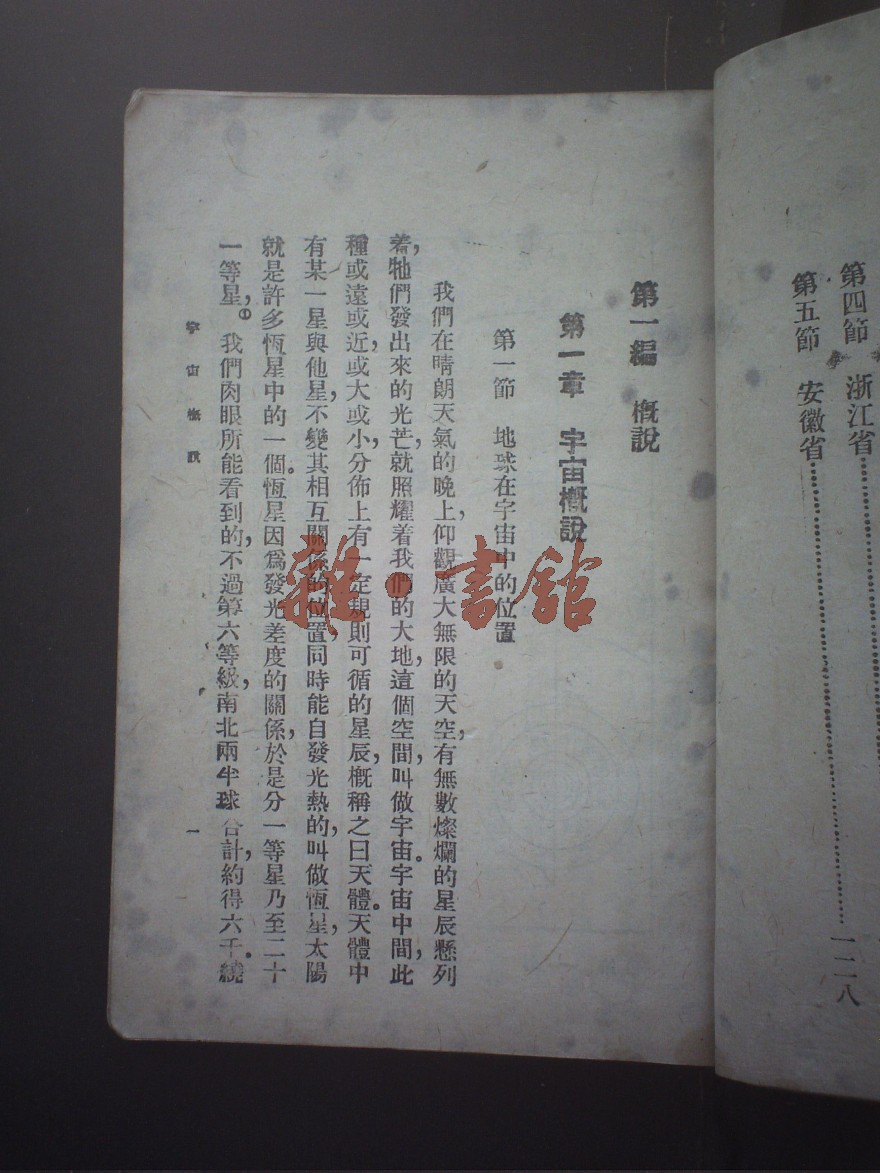 第四節 浙江省
第五節 安徽省……一二八
第一編 概說
第一章 宇宙概說
第一節 地球在宇宙中的位置
我們在晴朗天氣的晚上，仰觀廣大無限的天空，有無數燦爛的星辰懸列
着，牠們發出來的光芒，就照耀着我們的大地，這個空間，叫做宇宙。宇宙中間，此
種或遠或近，或大或小，分佈上有一定規則可循的星辰，概稱之曰天體。天體中
有某一星與他星，不變其相互關係的位置，同時能自發光熱的，叫做恆星，太陽
就是許多恆星中的一個。恆星因爲發光差度的關係，於是分一等星乃至二十
一等星，①我們肉眼所能看到的，不過第六等級，南北兩半球合計，約得六千。繞
宇宙概說
一
雜·書館